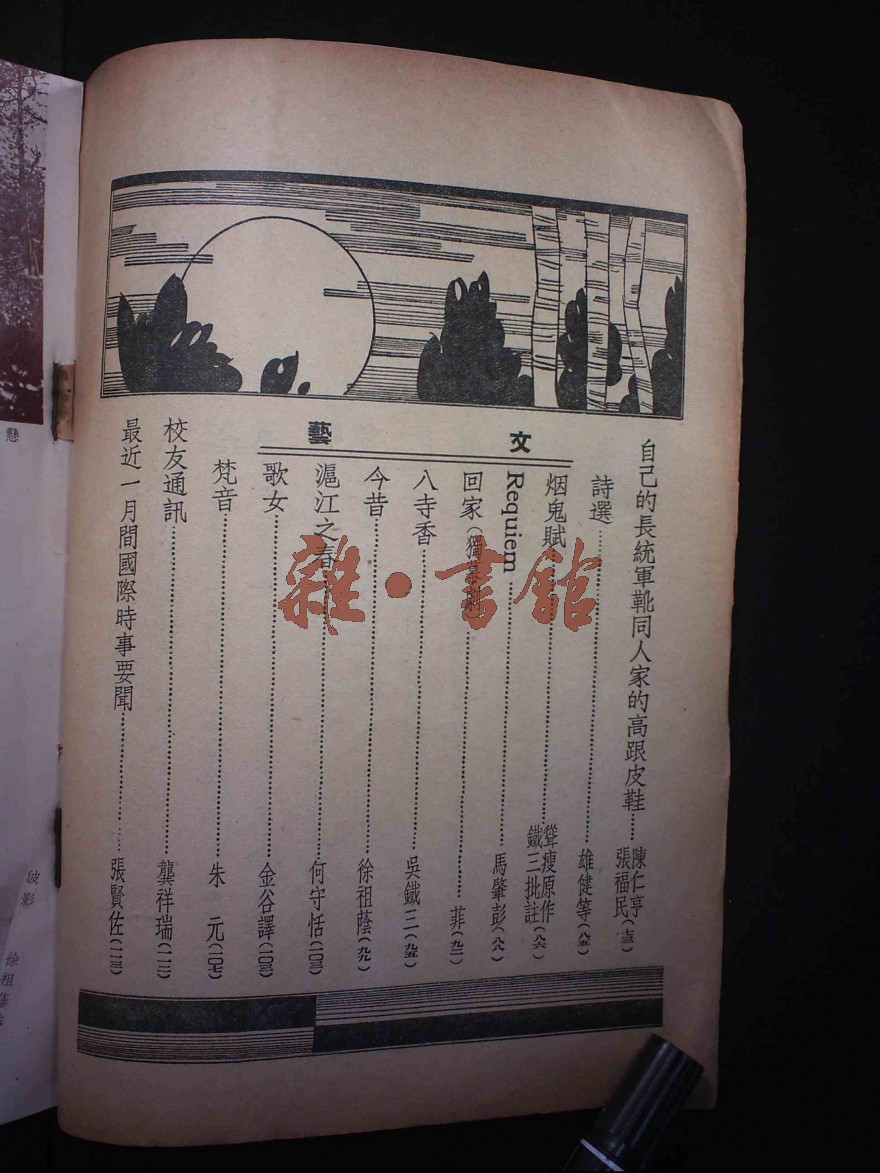 文藝
自己的長統軍靴同人家的高跟皮鞋……陳仁亨 張福民(七三)
詩選……雄健等(八五)
烟鬼賦……聳瘦原作 鐵三批註(八六)
Requiem……馬肇彭(八八)
回家(獨幕劇)……菲(九二)
八寺香……吳鐵三(九五)
今昔……徐祖蔭(九九)
滬江之春……何守恬(一〇三)
歌女……金谷譯(一〇三)
梵音……朱元(一〇七)
校友通訊……龔祥瑞(一一二)
最近一月間國際時事要聞……張賢佐(一一三)
雜·書館
懸
波影
徐祖蔭